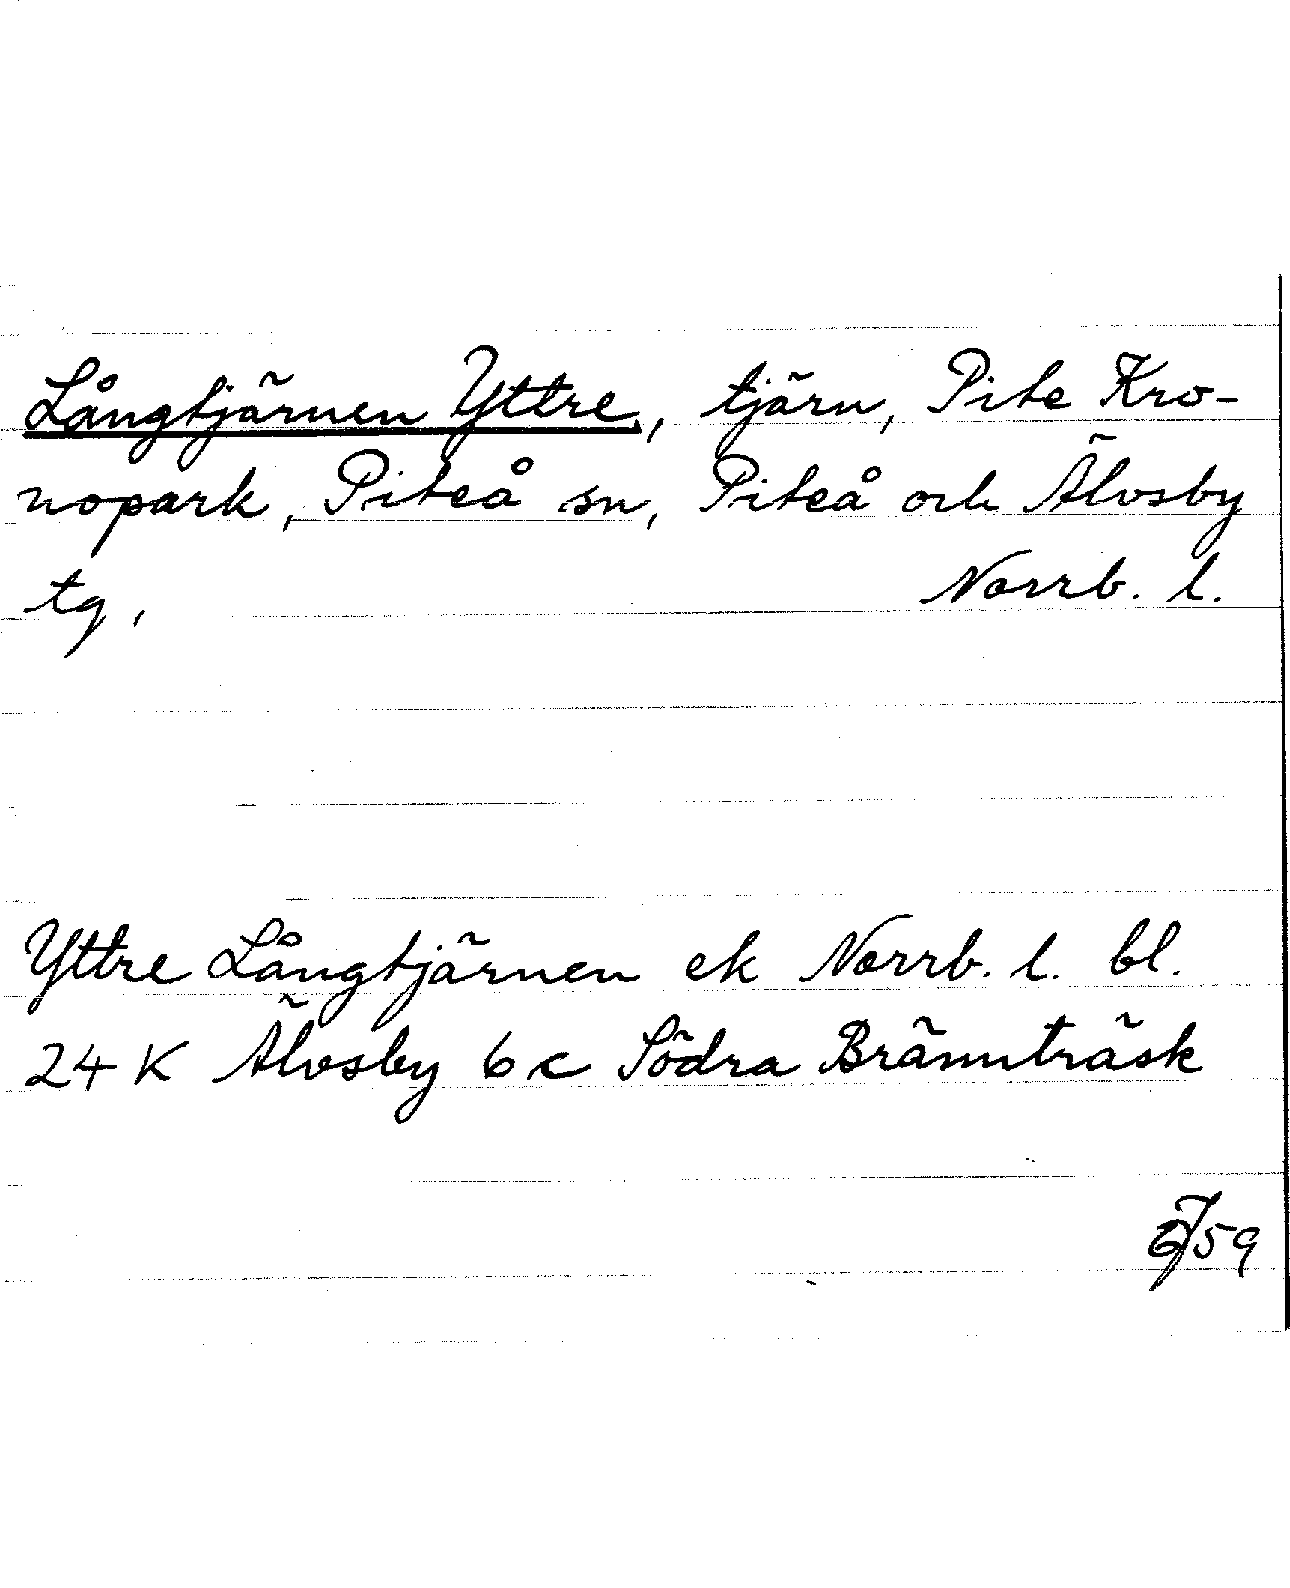 Långtjärnen Yttre, tjärn, Pite Kro-
nopark, Piteå sn, Piteå och Älvsby
tg, Norrb. l.
Yttre Långtjärnen ek Norrb. l. bl.
24 K Älvsby 6 c Södra Brännträsk
59